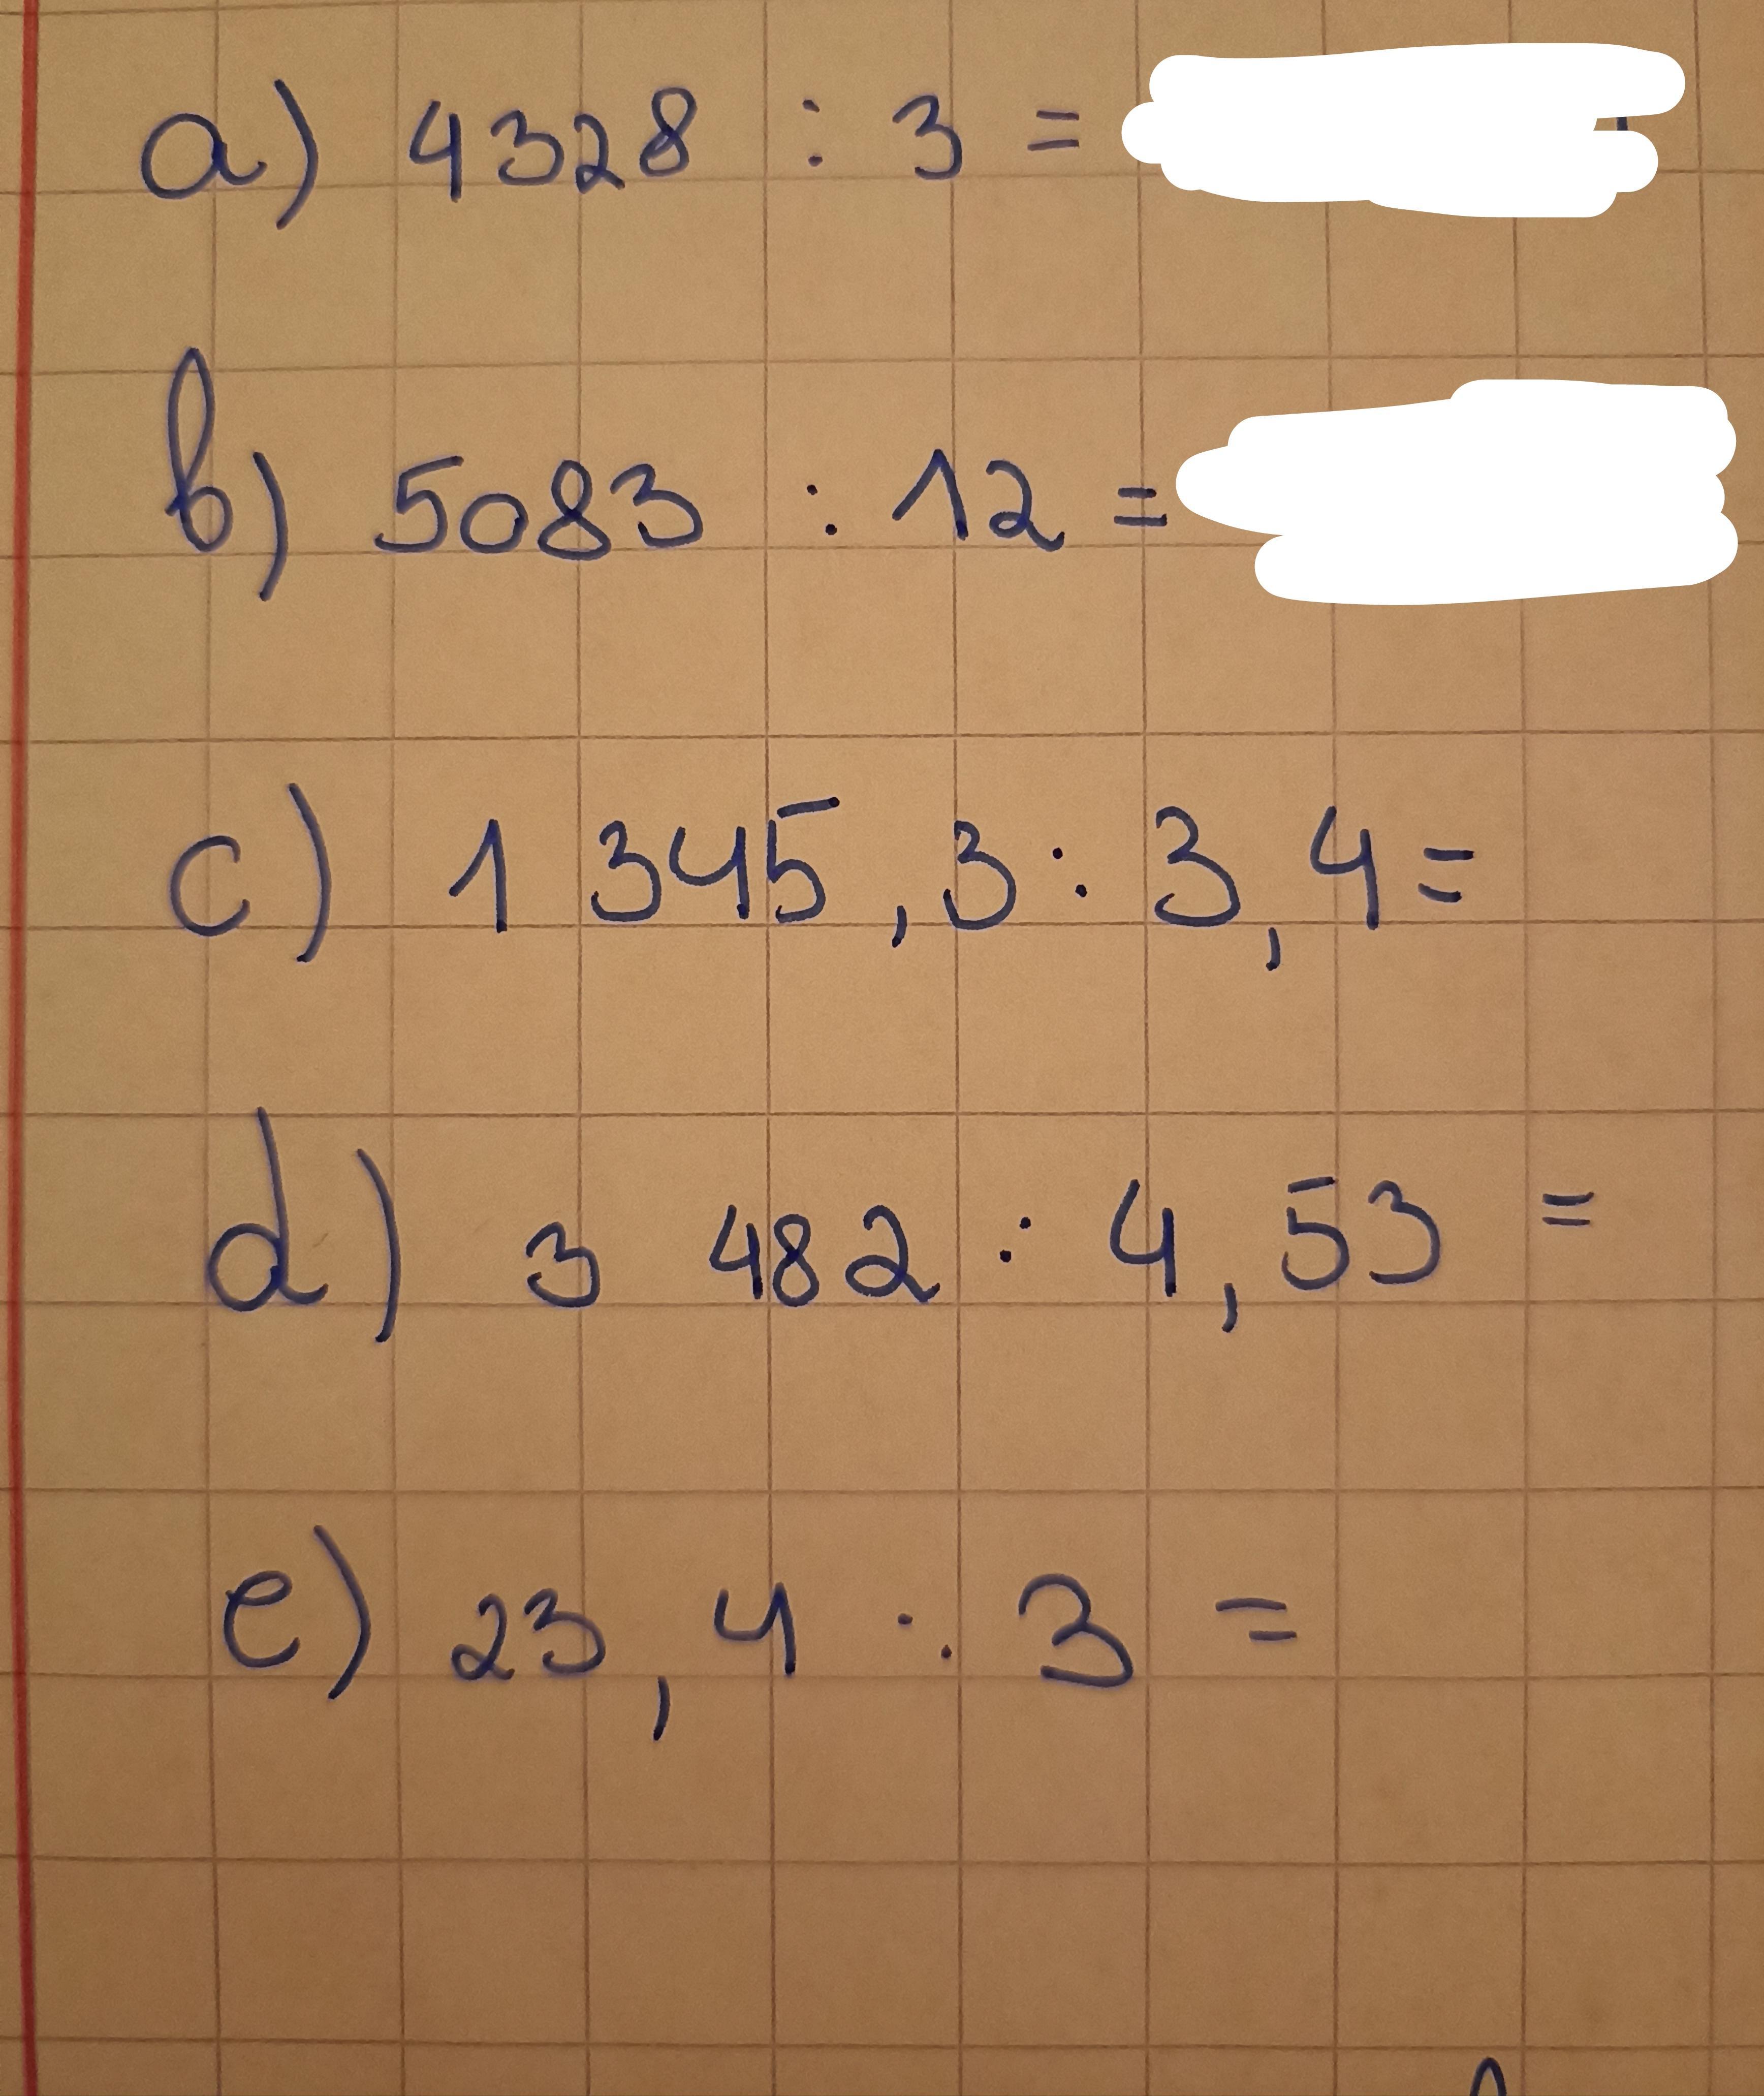 a) 4328 : 3 =
b) 5083 : 12 =
c) 1 345,3 : 3,4 =
d) 3 482 : 4,53 =
e) 23,4 : 3 =